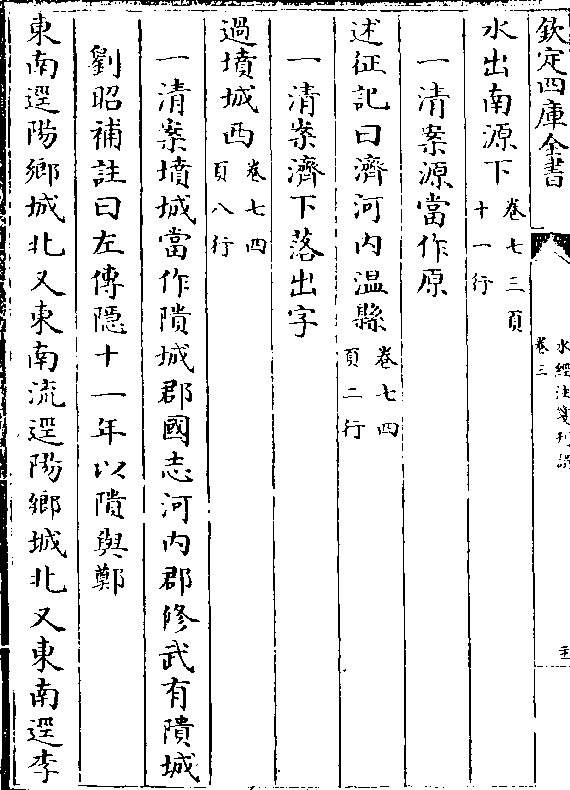 欽定四庫全書
水經注箋刊誤
卷三
水出南源下卷七三頁十一行
一清案源當作原
述征記曰濟河内温縣卷七四頁二行
一清案濟下落出字
過墳城西卷七四頁八行
一清案墳城當作隤城郡國志河内郡修武有隤城
劉昭補註曰左傳隱十一年以隤與鄭
東南逕陽鄉城北又東南流逕陽鄉城北又東南逕李